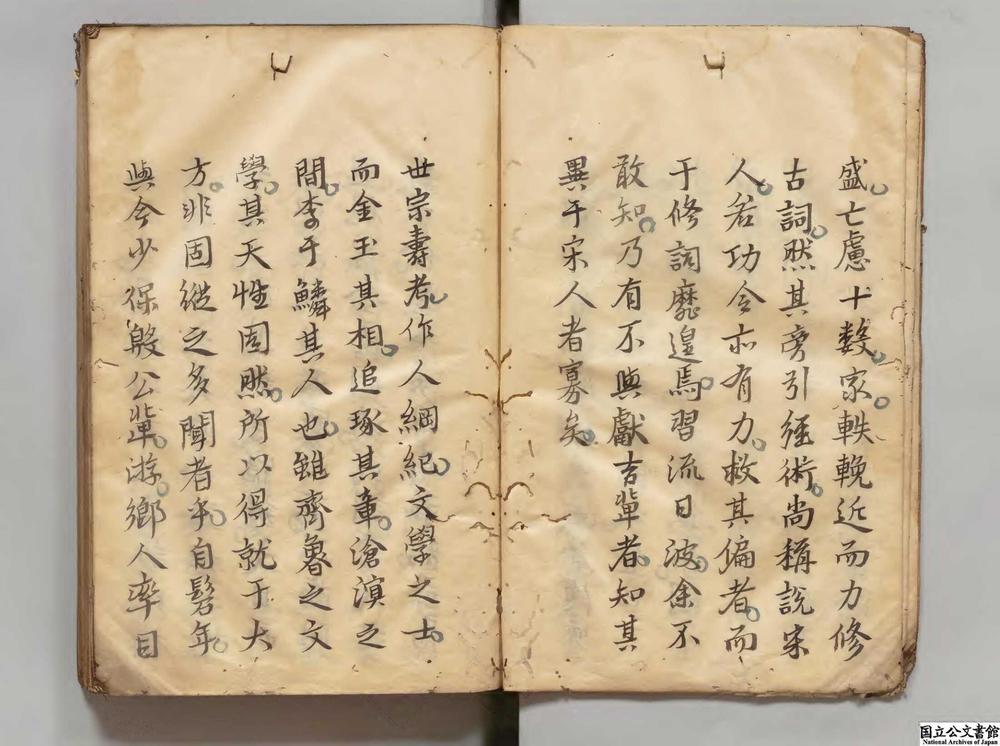 盛亡慮十數家軼輓近而力修
古詞然其旁引経術尚稱說宋
人若功令亦有力救其偏者而
于修詞靡遑焉習流日波余不
敢知乃有不與獻吉輩者知其
異于宋人者寡矣
世宗壽考作人綱紀文學之士
而金玉其相追琢其章滄溟之
間李于鱗其人也雖齊魯之文
學其天性固然所以得就于大
方非固縦之多聞者乎自髫年
與今少保殷公輩游鄉人率目
国立公文書館
National Archives of Japan